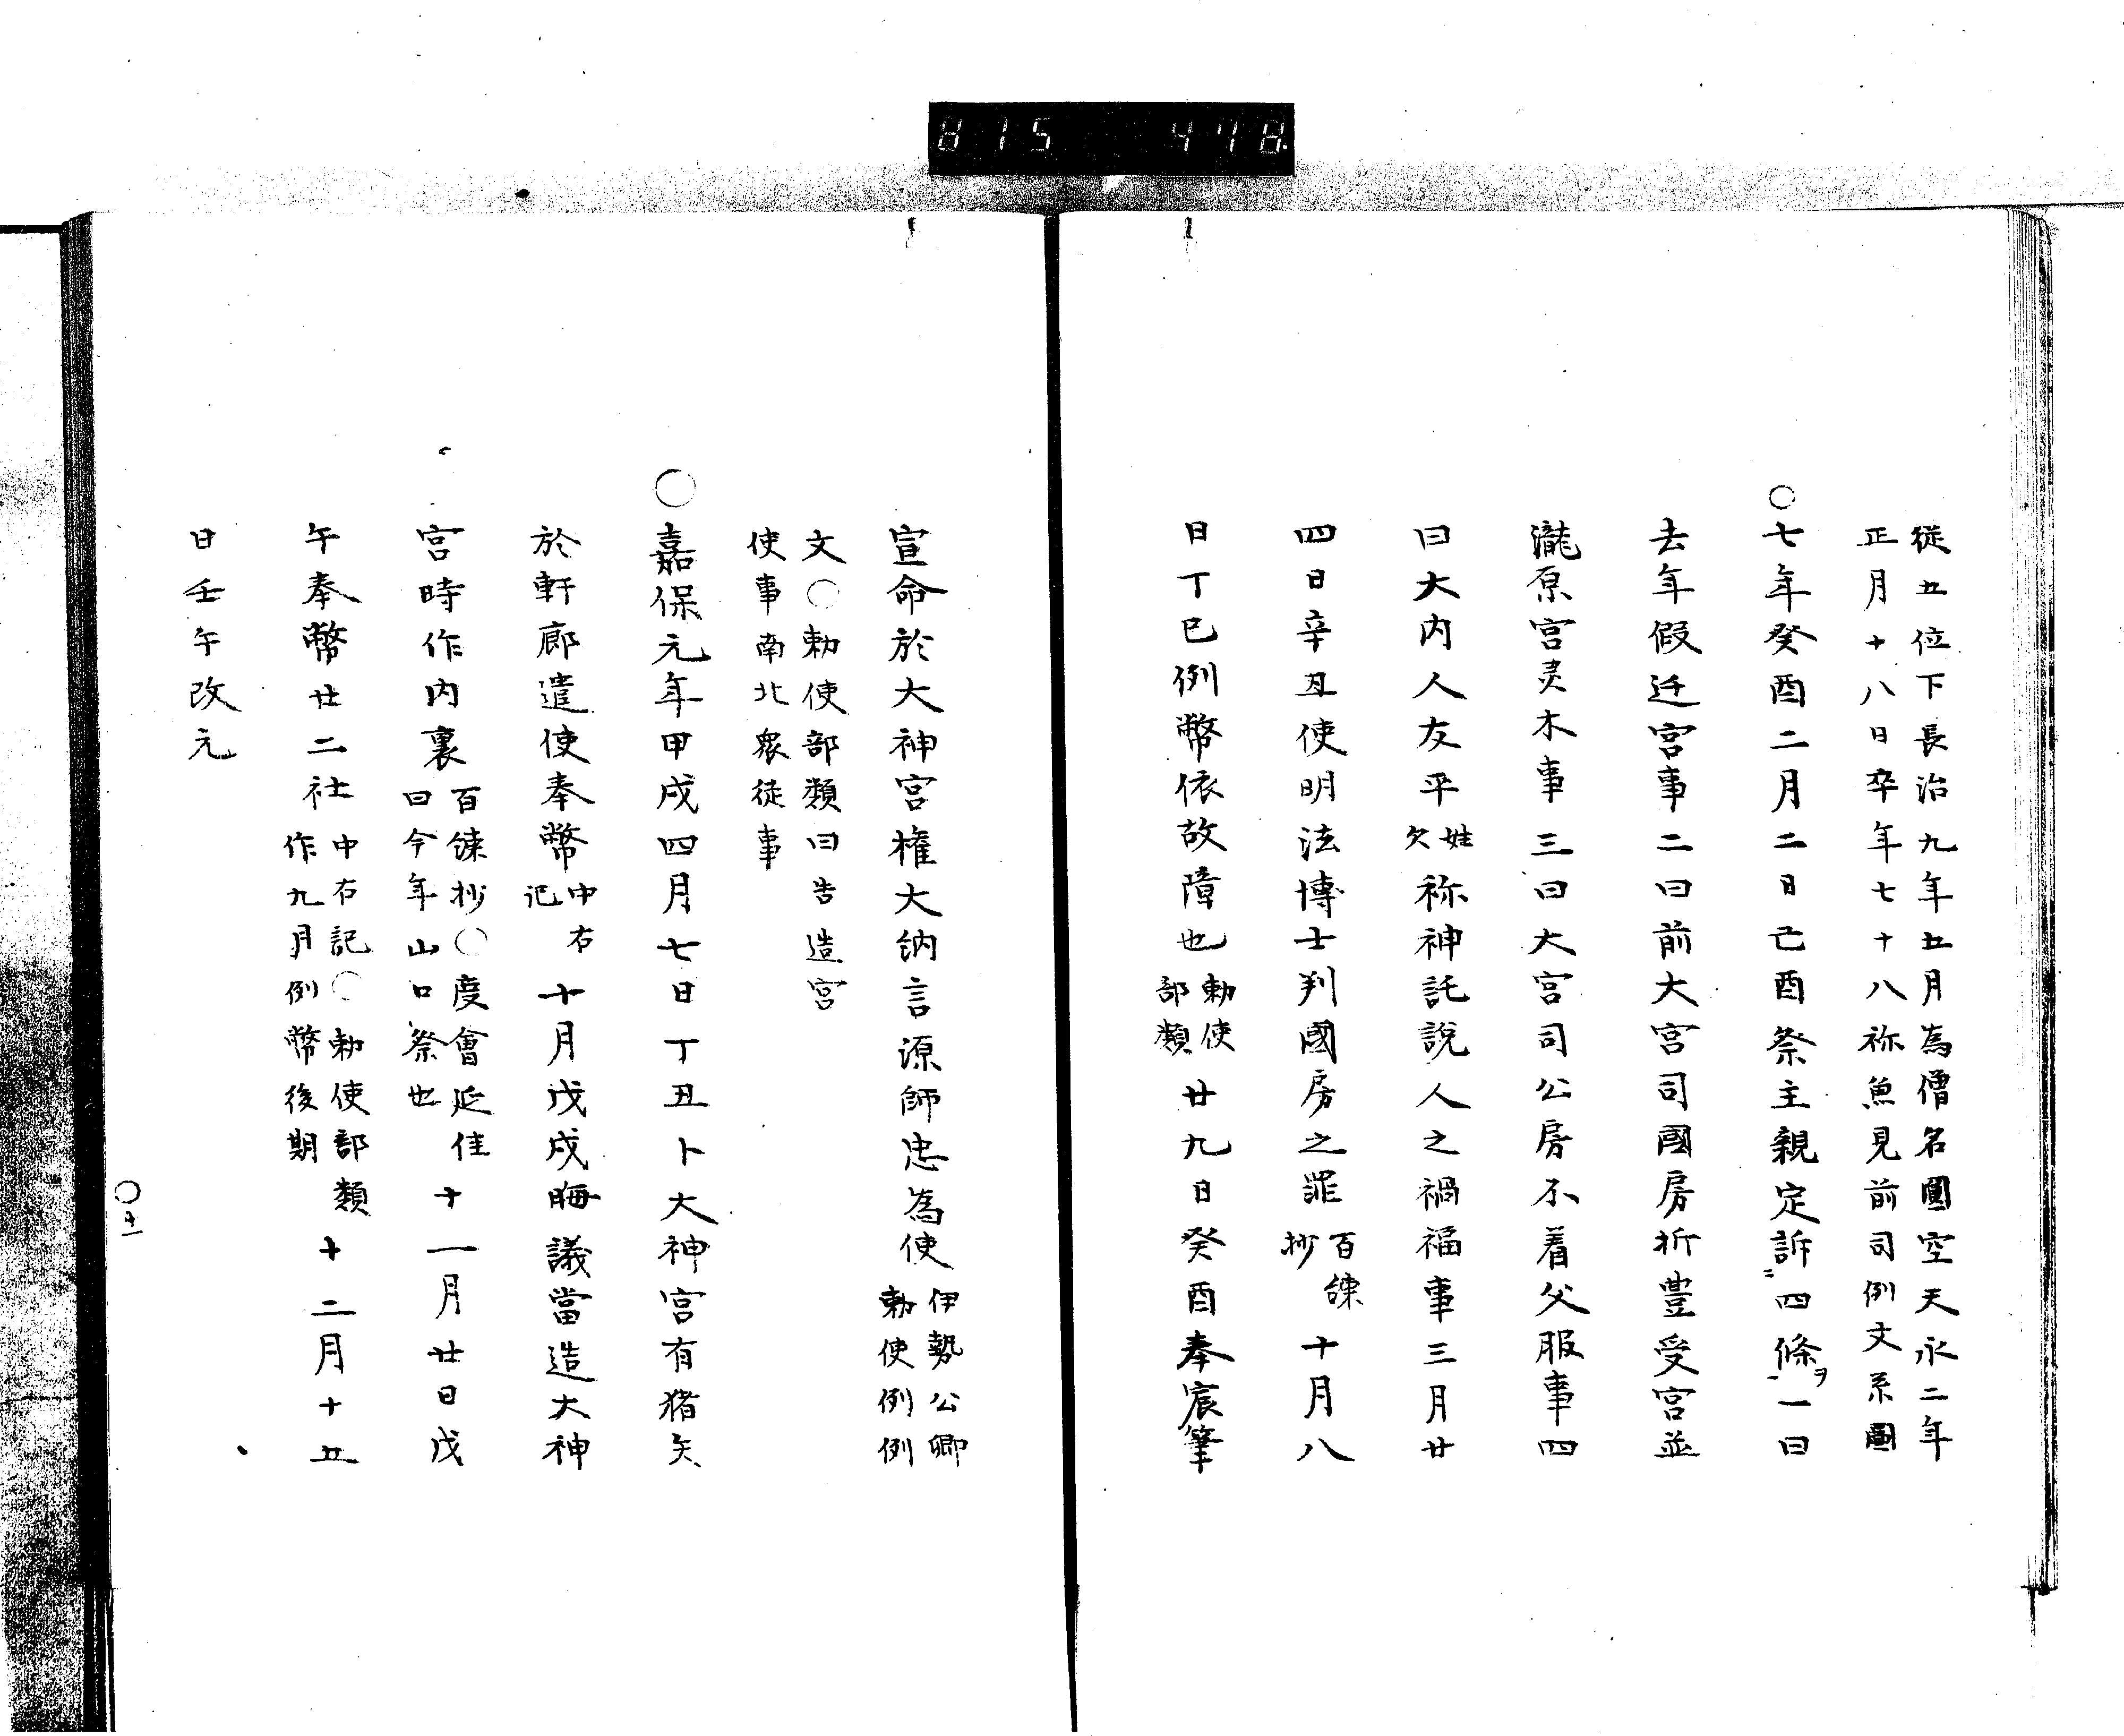 815 478
従五位下長治九年五月為僧名圓空天永二年
正月十八日卒年七十八祢魚見前司例文系圖
○七年癸酉二月二日己酉祭主親定訴四條ヲ一曰
去年假迁宮事二曰前大宮司國房折豊受宮並
瀧原宮灵木事三曰大宮司公房不着父服事四
曰大内人友平姓欠祢神託説人之禍福事三月廿
四日辛丑使明法博士判國房之罪百錬抄十月八
日丁巳例幣依故障也勅使部類廿九日癸酉奉宸筆
宣命於大神宮権大納言源師忠為使伊勢公卿勅使例例
文○勅使部類曰告造宮
使事南北衆徒事
○嘉保元年甲戌四月七日丁丑卜大神宮有猪矢
於軒廊遣使奉幣中右記十月戊戌晦議當造大神
宮時作内裏百錬抄○度會延佳曰今年山口祭也十一月廿日戊
午奉幣廿二社中右記○勅使部類作九月例幣後期十二月十五
日壬午改元
○十一